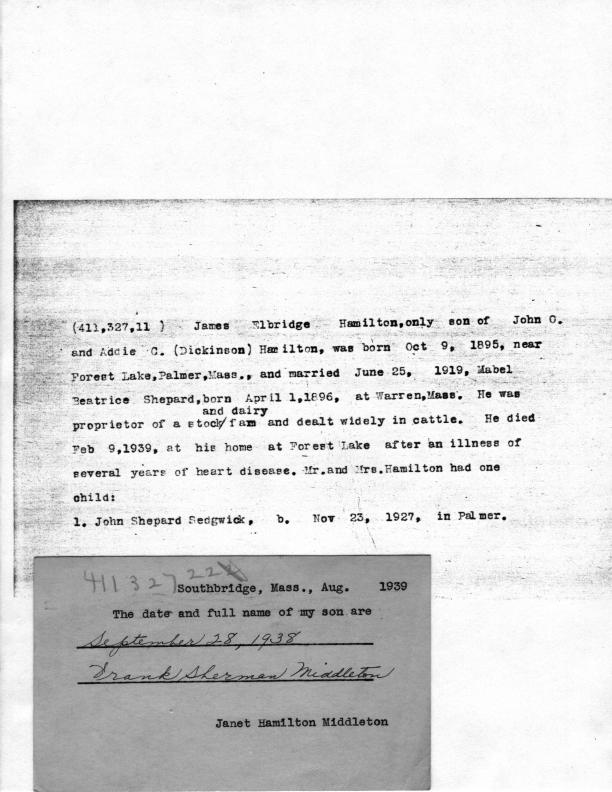 (411,327,11 ) James Elbridge Hamilton,only son of John G.
and Addie C. (Dickinson) Hamilton, was born Oct 9, 1895, near
Forest Lake,Palmer,Mass., and married June 25, 1919, Mabel
Beatrice Shepard,born April 1,1896, at Warren,Mass. He was
and dairy
proprietor of a stock/fam and dealt widely in cattle. He died
Feb 9,1939, at his home at Forest Lake after an illness of
several years of heart disease. Mr.and Mrs.Hamilton had one
child:
1. John Shepard Sedgwick, b. Nov 23, 1927, in Palmer.
411 327 22
Southbridge, Mass., Aug. 1939
The date and full name of my son are
September 28, 1938
Frank Sherman Middleton
Janet Hamilton Middleton